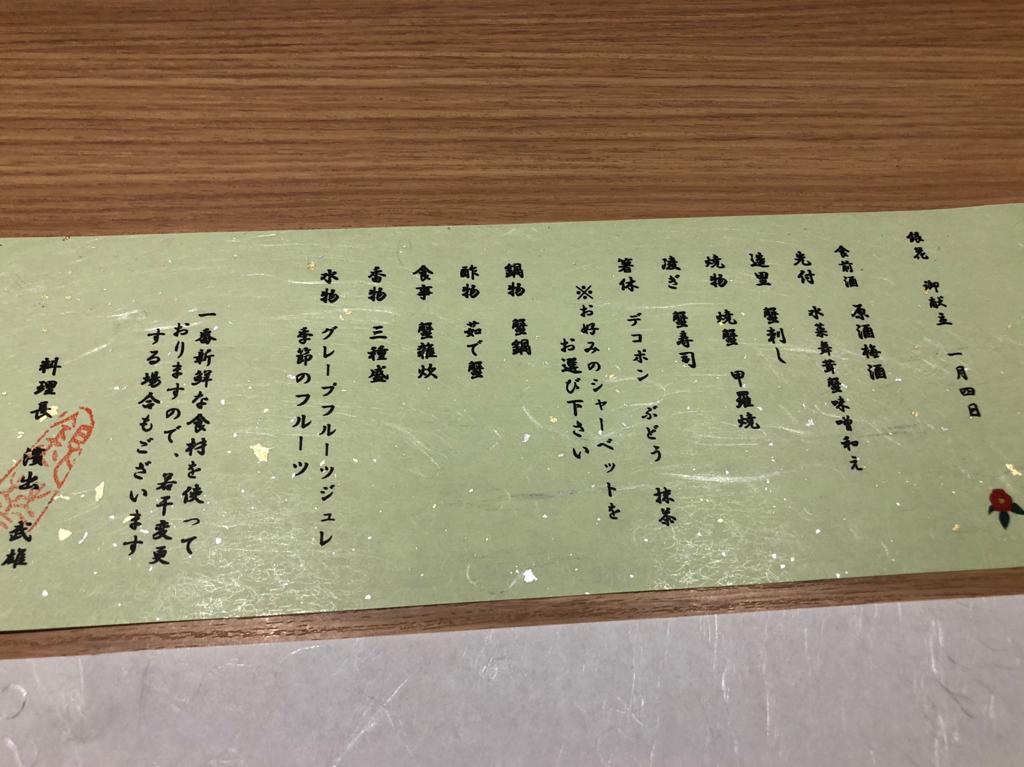 銀花 御献立 一月四日
食前酒 原酒梅酒
先付 水菜舞茸蟹味噌和え
造里 蟹刺し
焼物 焼蟹 甲羅焼
凌ぎ 蟹寿司
箸休 デコポン ぶどう 抹茶
※お好みのシャーベットを
お選び下さい
鍋物 蟹鍋
酢物 茹で蟹
食事 蟹雑炊
香物 三種盛
水物 グレープフルーツジュレ
季節のフルーツ
一番新鮮な食材を使って
おりますので、若干変更
する場合もございます
料理長 濱出 武雄